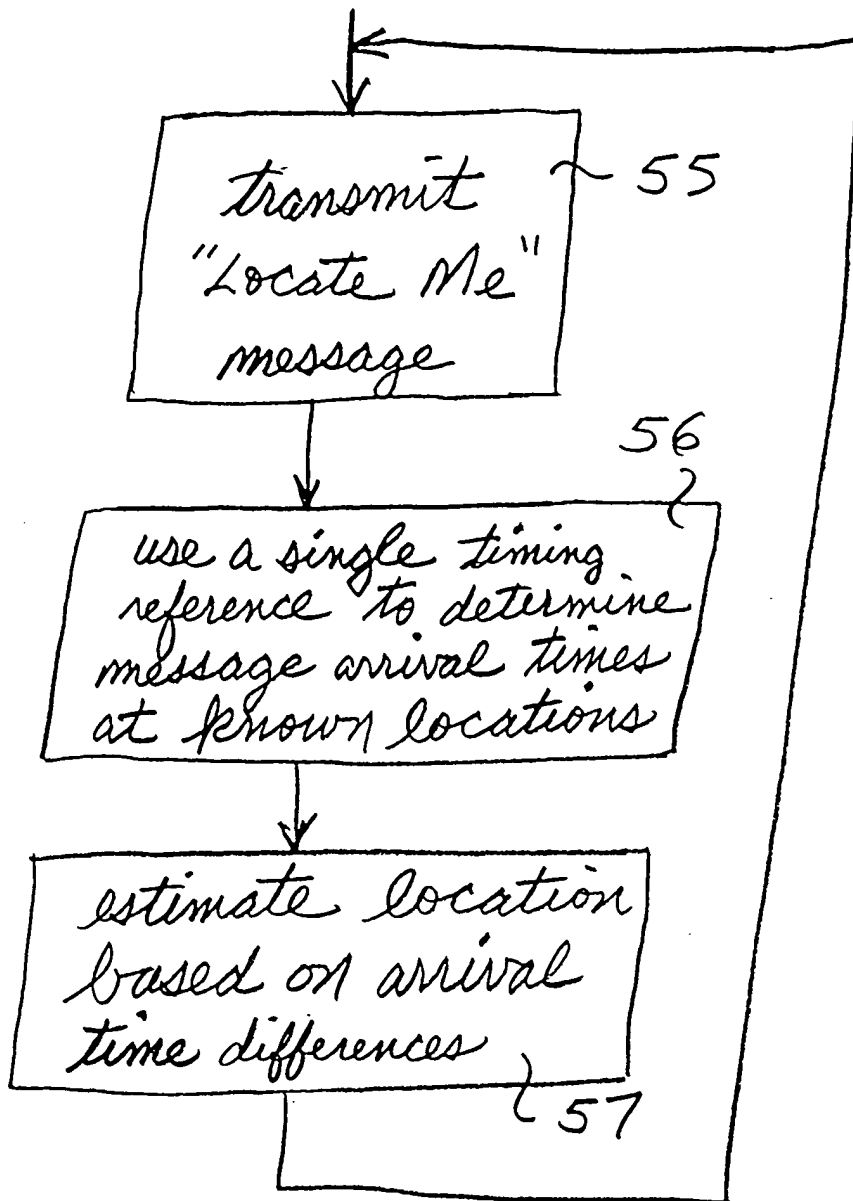 transmit
"Locate Me"
message
55
56
use a single timing
reference to determine
message arrival times
at known locations
estimate location
based on arrival
time differences
57